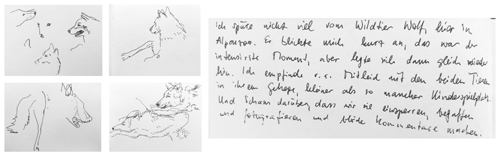 Ich spüre nicht viel vom Wildtier Wolf, hier in
Alpenzoo. Er blickte mich kurz an, das war der
intensivste Moment, aber legte sich dann gleich wieder
hin. Ich empfinde Mitleid mit den beiden Tieren
in ihrem Gehege, kleiner als so mancher Kinderspielplatz.
Und Scham darüber, dass wir sie einsperren, begaffen
und fotografieren und blöde Kommentare machen.